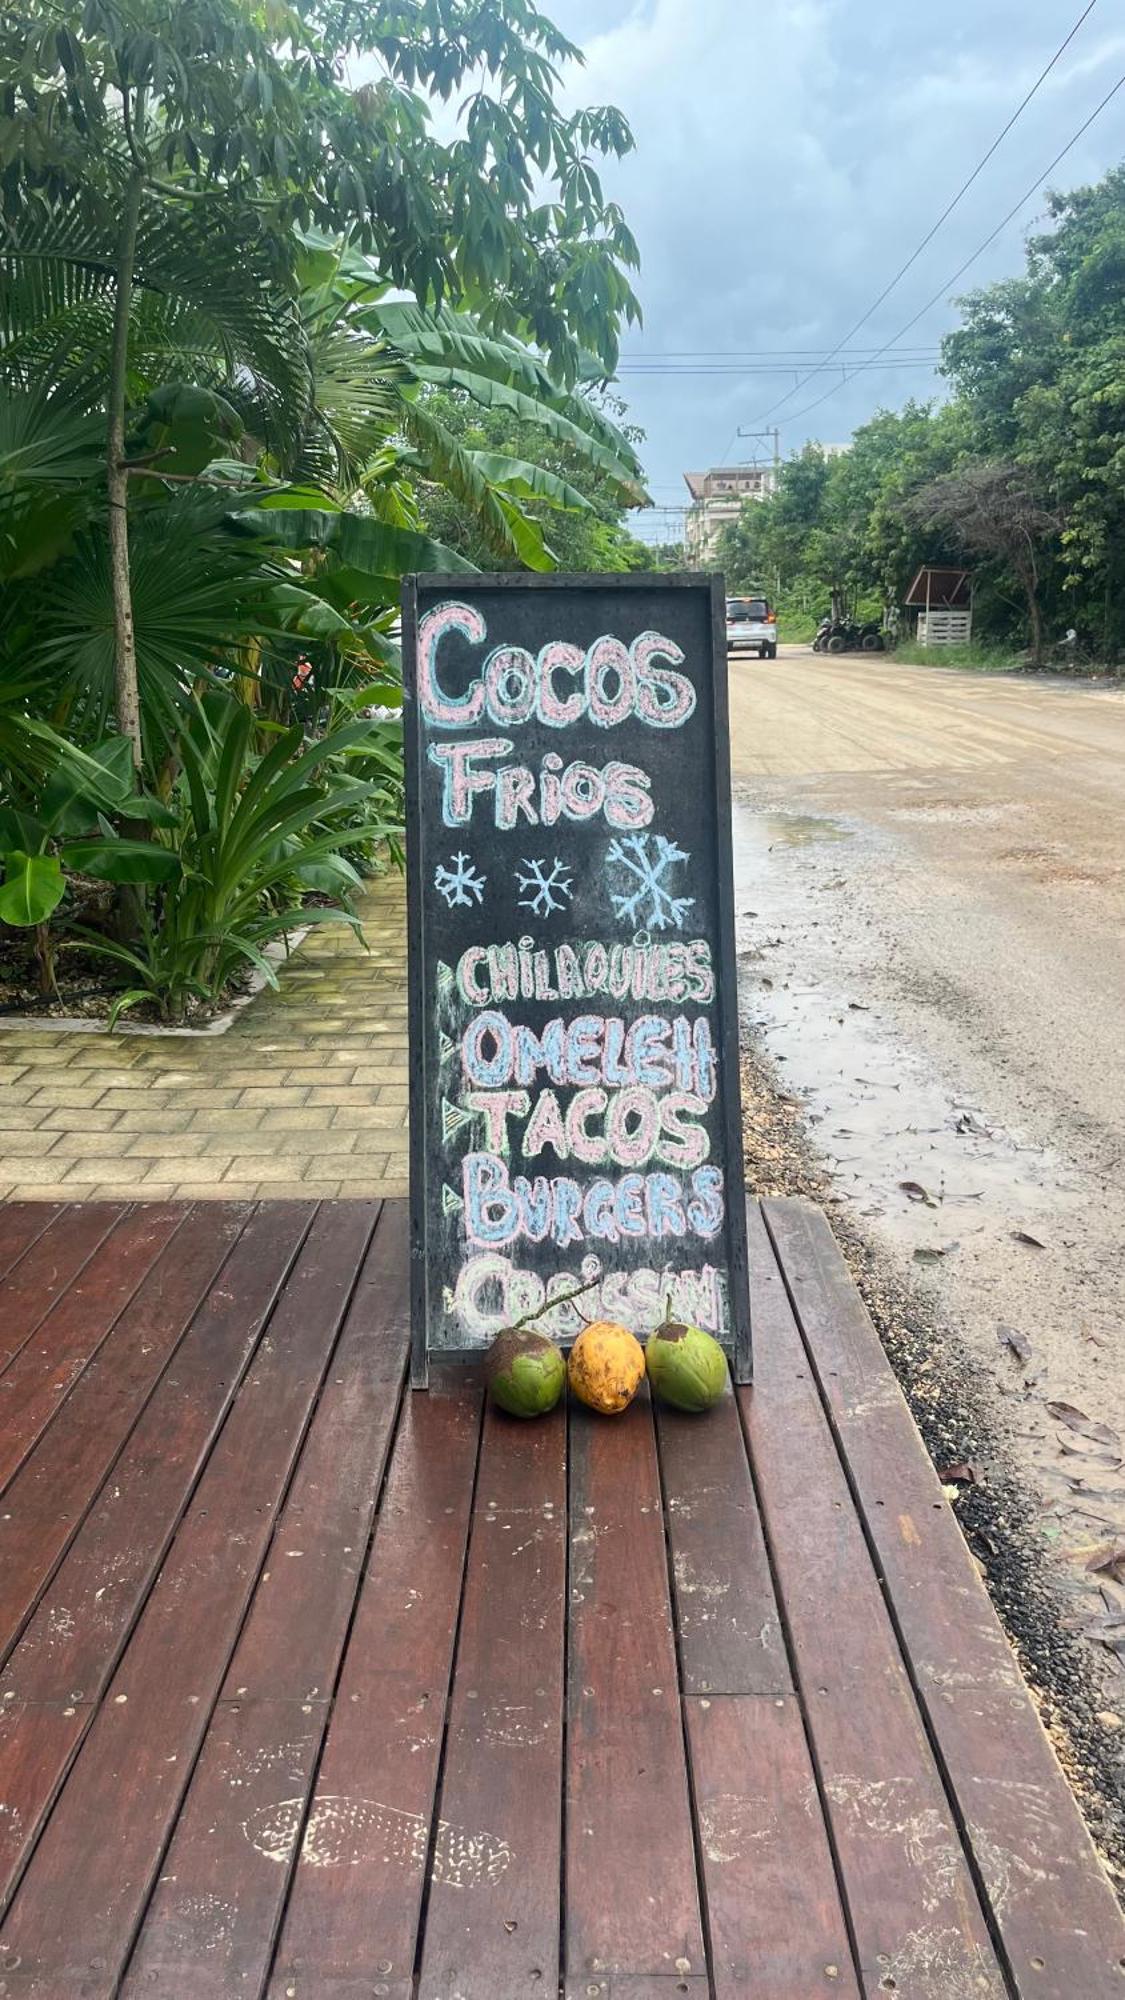 Cocos
Frios
CHiLAQUiLES
OMELEtt
TACOS
BURGERS
CROiSSAN